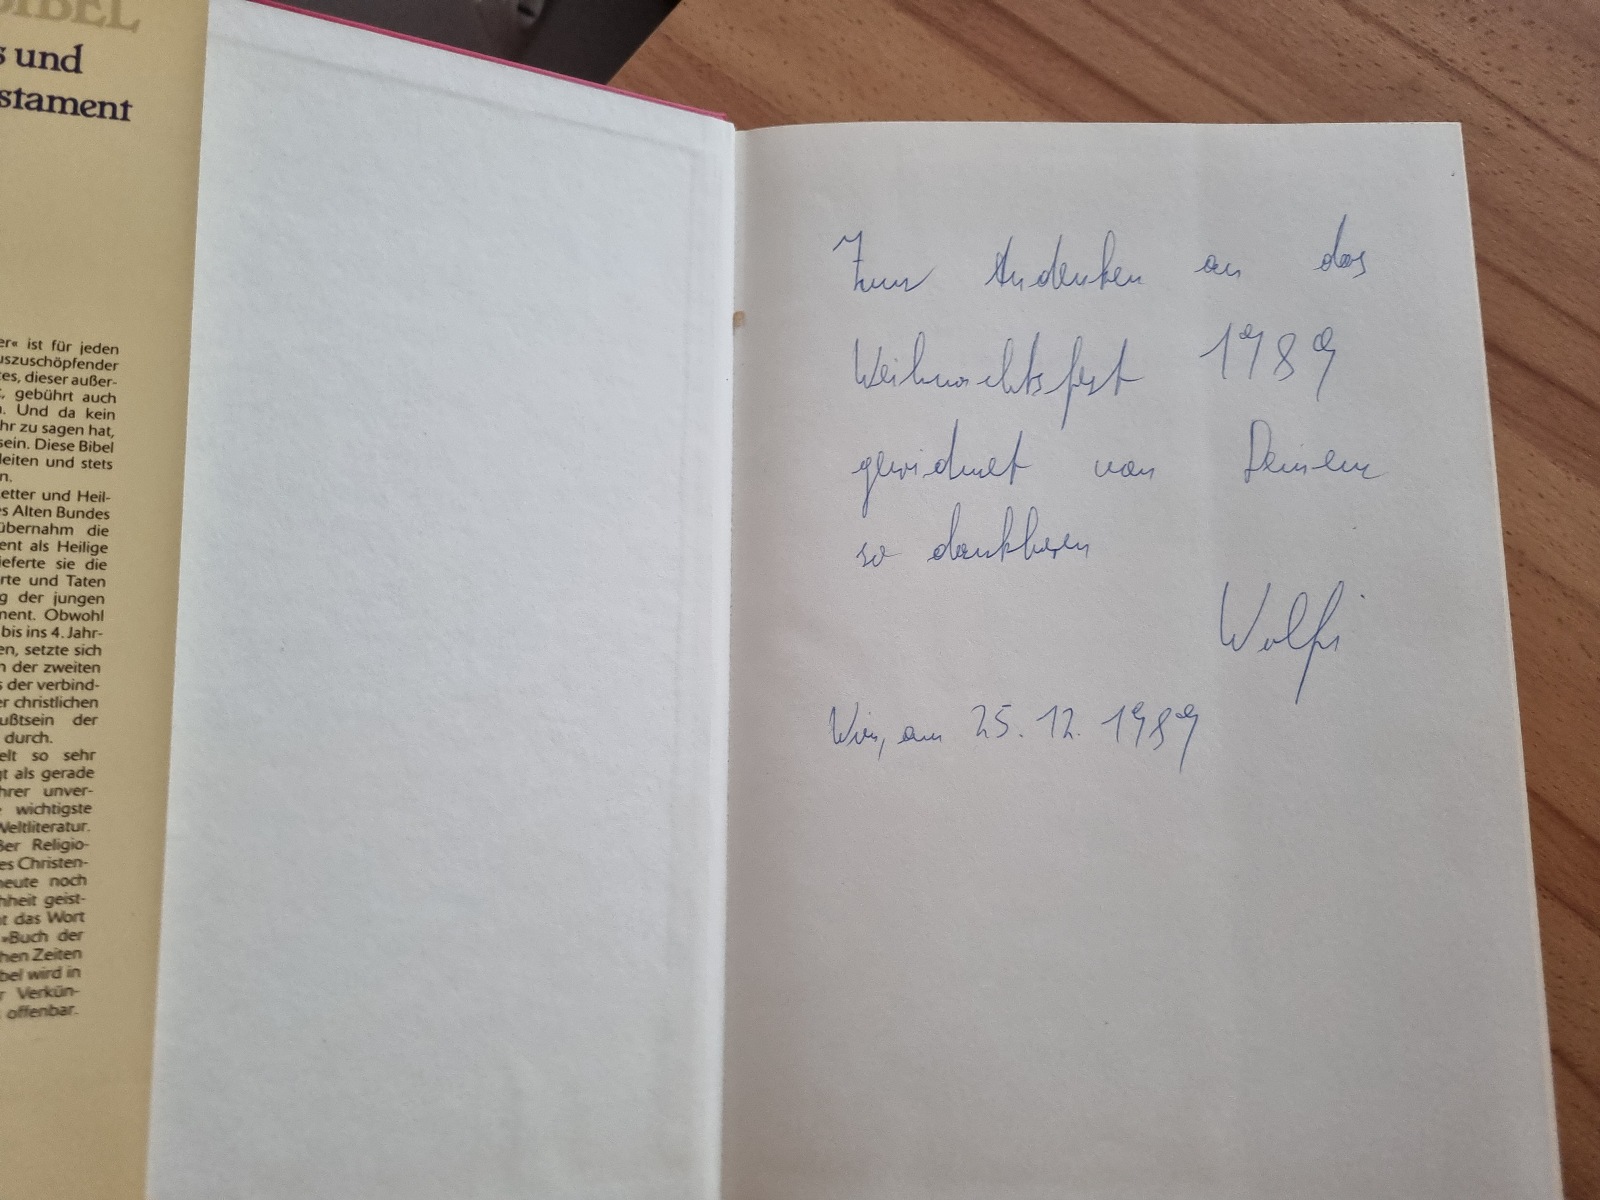 BIBEL
s und
stament
er« ist für jeden
uszuschöpfender
es, dieser außer-
, gebührt auch
n. Und da kein
hr zu sagen hat,
sein. Diese Bibel
leiten und stets
n.
etter und Heil-
s Alten Bundes
übernahm die
ent als Heilige
ieferte sie die
rte und Taten
g der jungen
ment. Obwohl
bis ins 4. Jahr-
en, setzte sich
n der zweiten
s der verbind-
er christlichen
ußtsein der
durch.
elt so sehr
gt als gerade
hrer unver-
wichtigste
Weltliteratur.
ßer Religio-
es Christen-
heute noch
hheit geist-
t das Wort
»Buch der
hen Zeiten
bel wird in
r Verkün-
offenbar.
Zum Andenken an das
Weihnachtsfest 1989
gewidmet von Deinem
so dankbaren
Wolfi
Wien, am 25. 12. 1989